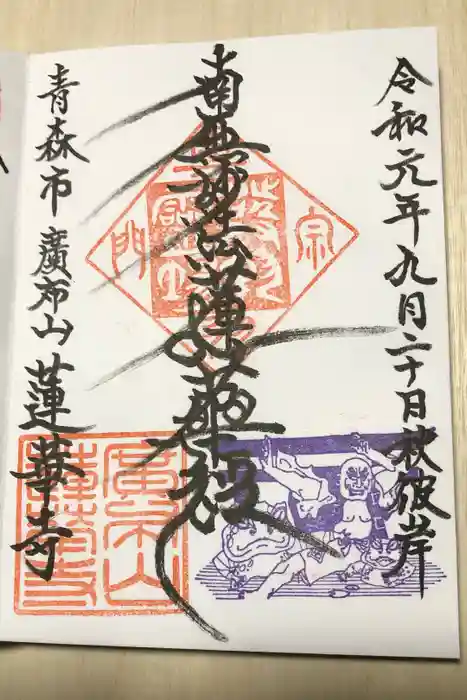 令和元年九月二十日秋彼岸
南無妙法蓮華経
青森市 廣布山 蓮華寺
宗
門
廣布山
蓮華寺